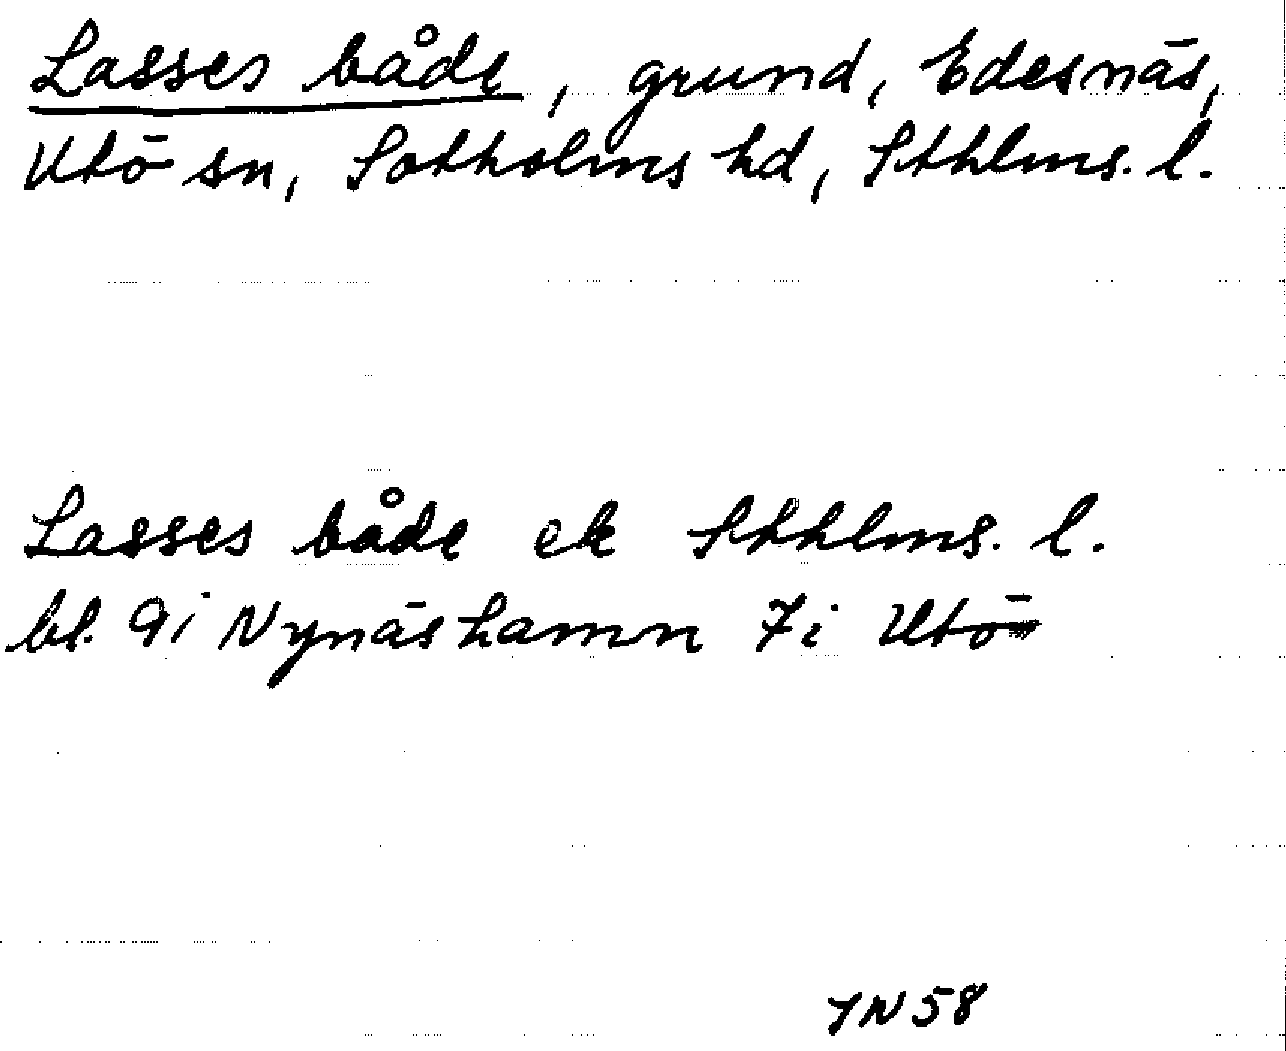 Lasses både, grund, Edesnäs,
Utö sn, Sotholms hd, Sthlms. l.
Lasses både ek Sthlms. l.
bl. 9i Nynäshamn 7i Utö
YN58